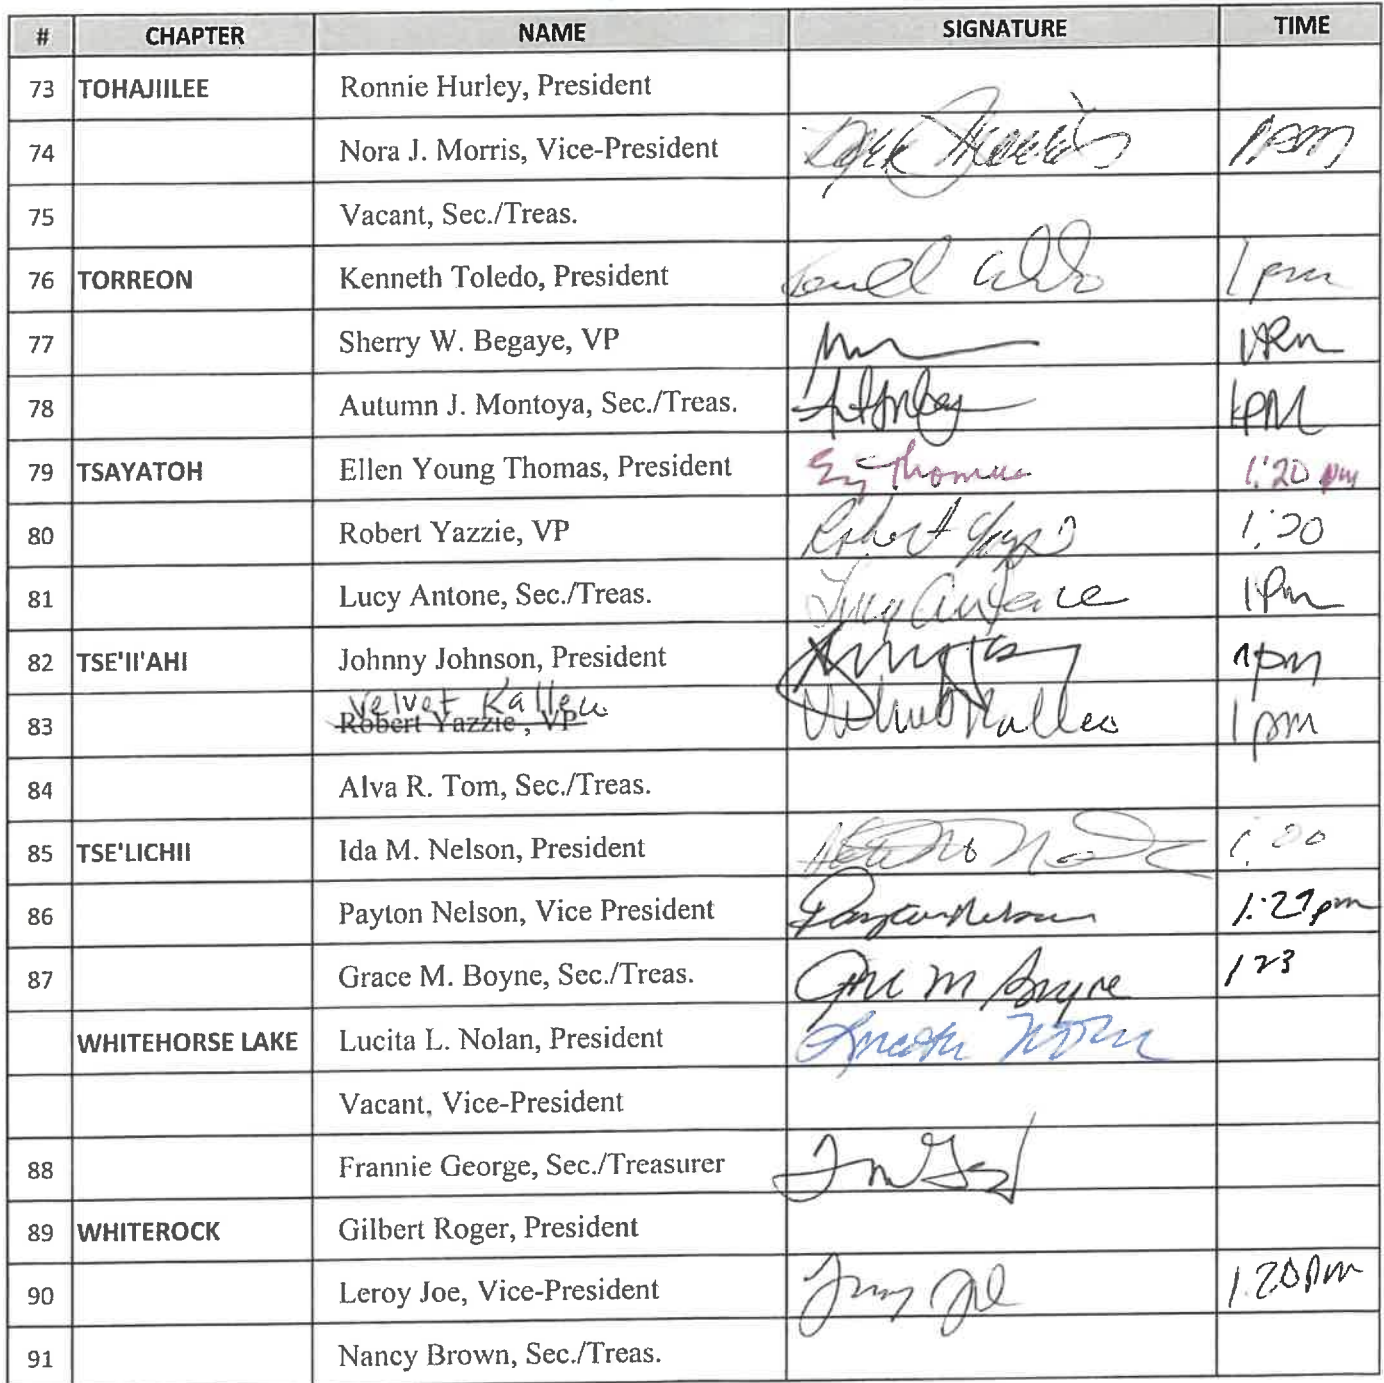 # CHAPTER NAME SIGNATURE TIME
73 TOHAJIILEE Ronnie Hurley, President
74 Nora J. Morris, Vice-President 1pm
75 Vacant, Sec./Treas.
76 TORREON Kenneth Toledo, President 1pm
77 Sherry W. Begaye, VP 1pm
78 Autumn J. Montoya, Sec./Treas. 1PM
79 TSAYATOH Ellen Young Thomas, President Ey Thomas 1:20 pm
80 Robert Yazzie, VP Robert Yazzie 1:20
81 Lucy Antone, Sec./Treas. 1Pm
82 TSE'II'AHI Johnny Johnson, President 1pm
Velvet Kallen
83 Robert Yazzie , VP 1pm
84 Alva R. Tom, Sec./Treas.
85 TSE'LICHII Ida M. Nelson, President 1:20
86 Payton Nelson, Vice President Payton Nelson pm
87 Grace M. Boyne, Sec./Treas. Grace M Boyne 123
WHITEHORSE LAKE Lucita L. Nolan, President
Vacant, Vice-President
88 Frannie George, Sec./Treasurer
89 WHITEROCK Gilbert Roger, President
90 Leroy Joe, Vice-President 1:20pm
91 Nancy Brown, Sec./Treas.